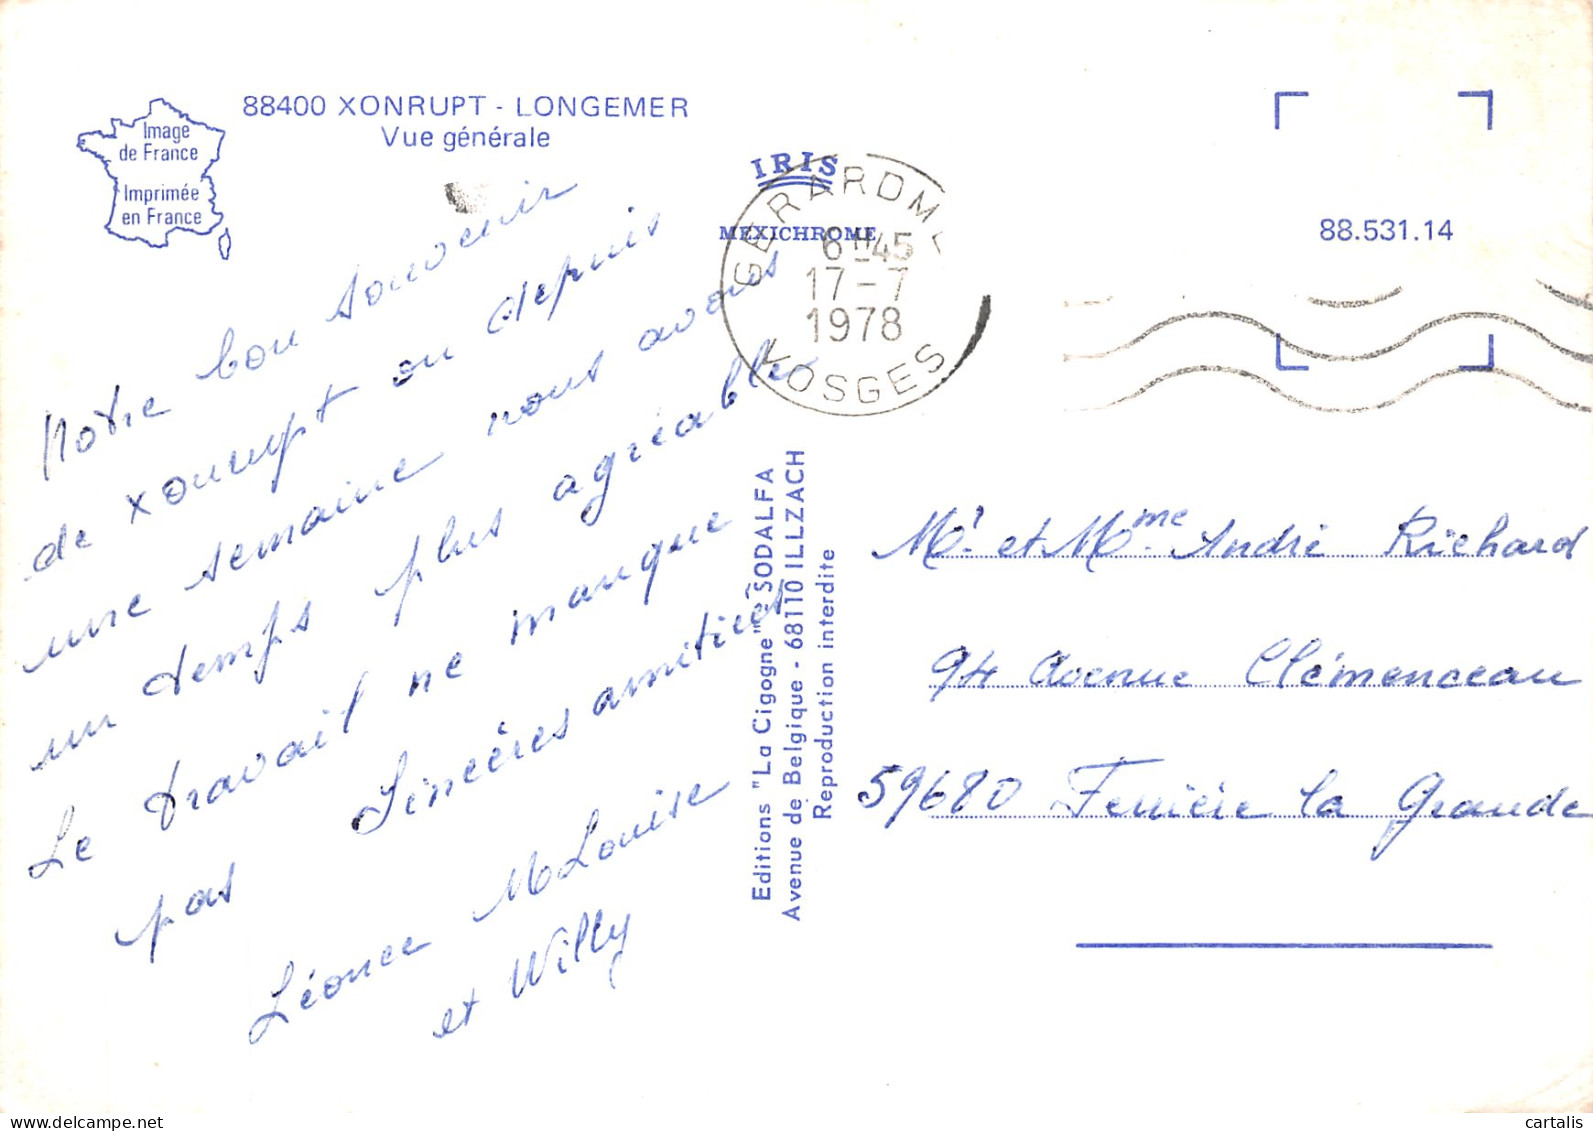 88400 XONRUPT - LONGEMER
Vue générale
Image
de France
Imprimée
en France
IRIS
MEXICHROME
GERARDME
6H45
17-7
1978
VOSGES
88.531.14
Notre bon souvenir
de Xonrupt ou depuis
une semaine nous avons
un temps plus agréable
Le travail ne manque
pas Sincères amitiés
Léonce M Louise
et Willy
Editions "La Cigogne" SODALFA
Avenue de Belgique - 68110 ILLZACH
Reproduction interdite
Mr. et Mme. André Richard
94 Avenue Clémenceau
59680 Ferrière la Grande
cartalis
www.delcampe.net